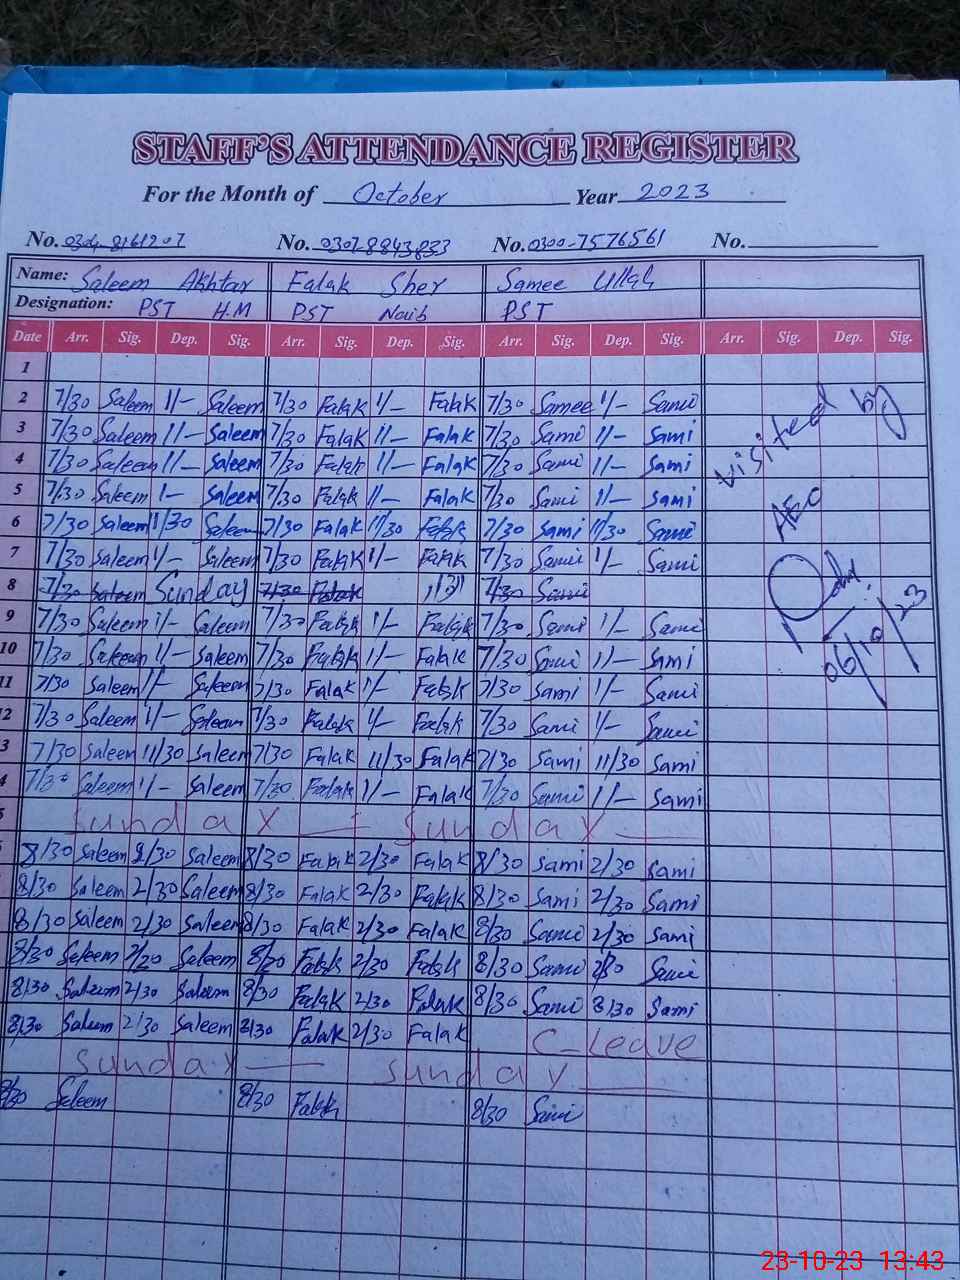 STAFF'S ATTENDANCE REGISTER
For the Month of October Year 2023
No. 0304-8161207 No. 0307-8843833 No. 0300-7576561 No.
Name: Saleem Akhtar Falak Sher Samee Ullah
Designation: PST H.M PST Naib PST
Date Arr. Sig. Dep. Sig. Arr. Sig. Dep. Sig. Arr. Sig. Dep. Sig. Arr. Sig. Dep. Sig.
1
2 7/30 Saleem 1/- Saleem 7/30 Falak 1/- Falak 7/30 Samee 1/- Sami
3 7/30 Saleem 1/- Saleem 7/30 Falak 1/- Falak 7/30 Sami 1/- Sami
4 7/30 Saleem 1/- Saleem 7/30 Falak 1/- Falak 7/30 Sami 1/- Sami
5 7/30 Saleem 1- Saleem 7/30 Falak 1/- Falak 7/30 Sami 1/- Sami
6 7/30 Saleem 11/30 Saleem 7/30 Falak 11/30 Falak 7/30 Sami 11/30 Sami
7 7/30 Saleem 1/- Saleem 7/30 Falak 1/- Falak 7/30 Sami 1/- Sami
8 7/30 Saleem Sunday 7/30 Falak 7/30 Sami
9 7/30 Saleem 1/- Saleem 7/30 Falak 1/- Falak 7/30 Sami 1/- Sami
10 7/30 Saleem 1/- Saleem 7/30 Falak 1/- Falak 7/30 Sami 1/- Sami
11 7/30 Saleem 1/- Saleem 7/30 Falak 1/- Falak 7/30 Sami 1/- Sami
12 7/30 Saleem 1/- Saleem 7/30 Falak 1/- Falak 7/30 Sami 1/- Sami
3 7/30 Saleem 11/30 Saleem 7/30 Falak 11/30 Falak 7/30 Sami 11/30 Sami
4 7/30 Saleem 1/- Saleem 7/30 Falak 1/- Falak 7/30 Sami 1/- Sami
Sunday — Sunday —
8/30 Saleem 2/30 Saleem 8/30 Falak 2/30 Falak 8/30 Sami 2/30 Sami
8/30 Saleem 2/30 Saleem 8/30 Falak 2/30 Falak 8/30 Sami 2/30 Sami
8/30 Saleem 2/30 Saleem 8/30 Falak 2/30 Falak 8/30 Sami 2/30 Sami
8/30 Saleem 2/20 Saleem 8/20 Falak 2/30 Falak 8/30 Sami 2/30 Sami
8/30 Saleem 2/30 Saleem 8/30 Falak 2/30 Falak 8/30 Sami 8/30 Sami
8/30 Saleem 2/30 Saleem 8/30 Falak 2/30 Falak C-Leave
Sunday — Sunday —
8/30 Saleem 8/30 Falak 8/30 Sami
Visited by
AEO
06/10/23
23-10-23 13:43